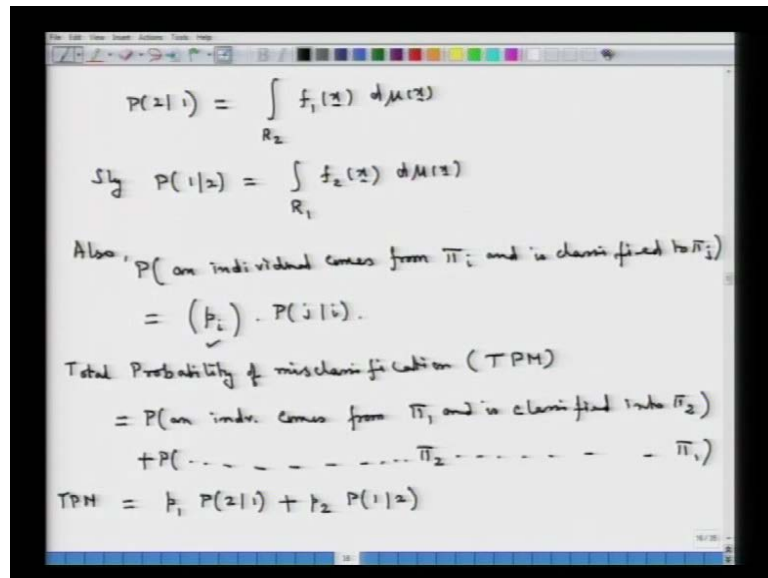 File Edit View Insert Actions Tools Help
P(2|1) = ∫_{R₂} f₁(x) dμ(x)
Sly P(1|2) = ∫_{R₁} f₂(x) dμ(x)
Also, P( an individual comes from π_i and is classified to π_j)
= (p_i) . P(j|i).
Total Probability of misclassification (TPM)
= P(an indv. comes from π₁ and is classified into π₂)
+P( . . . . . . . . . π₂ . . . . . . . π₁)
TPM = p₁ P(2|1) + p₂ P(1|2)